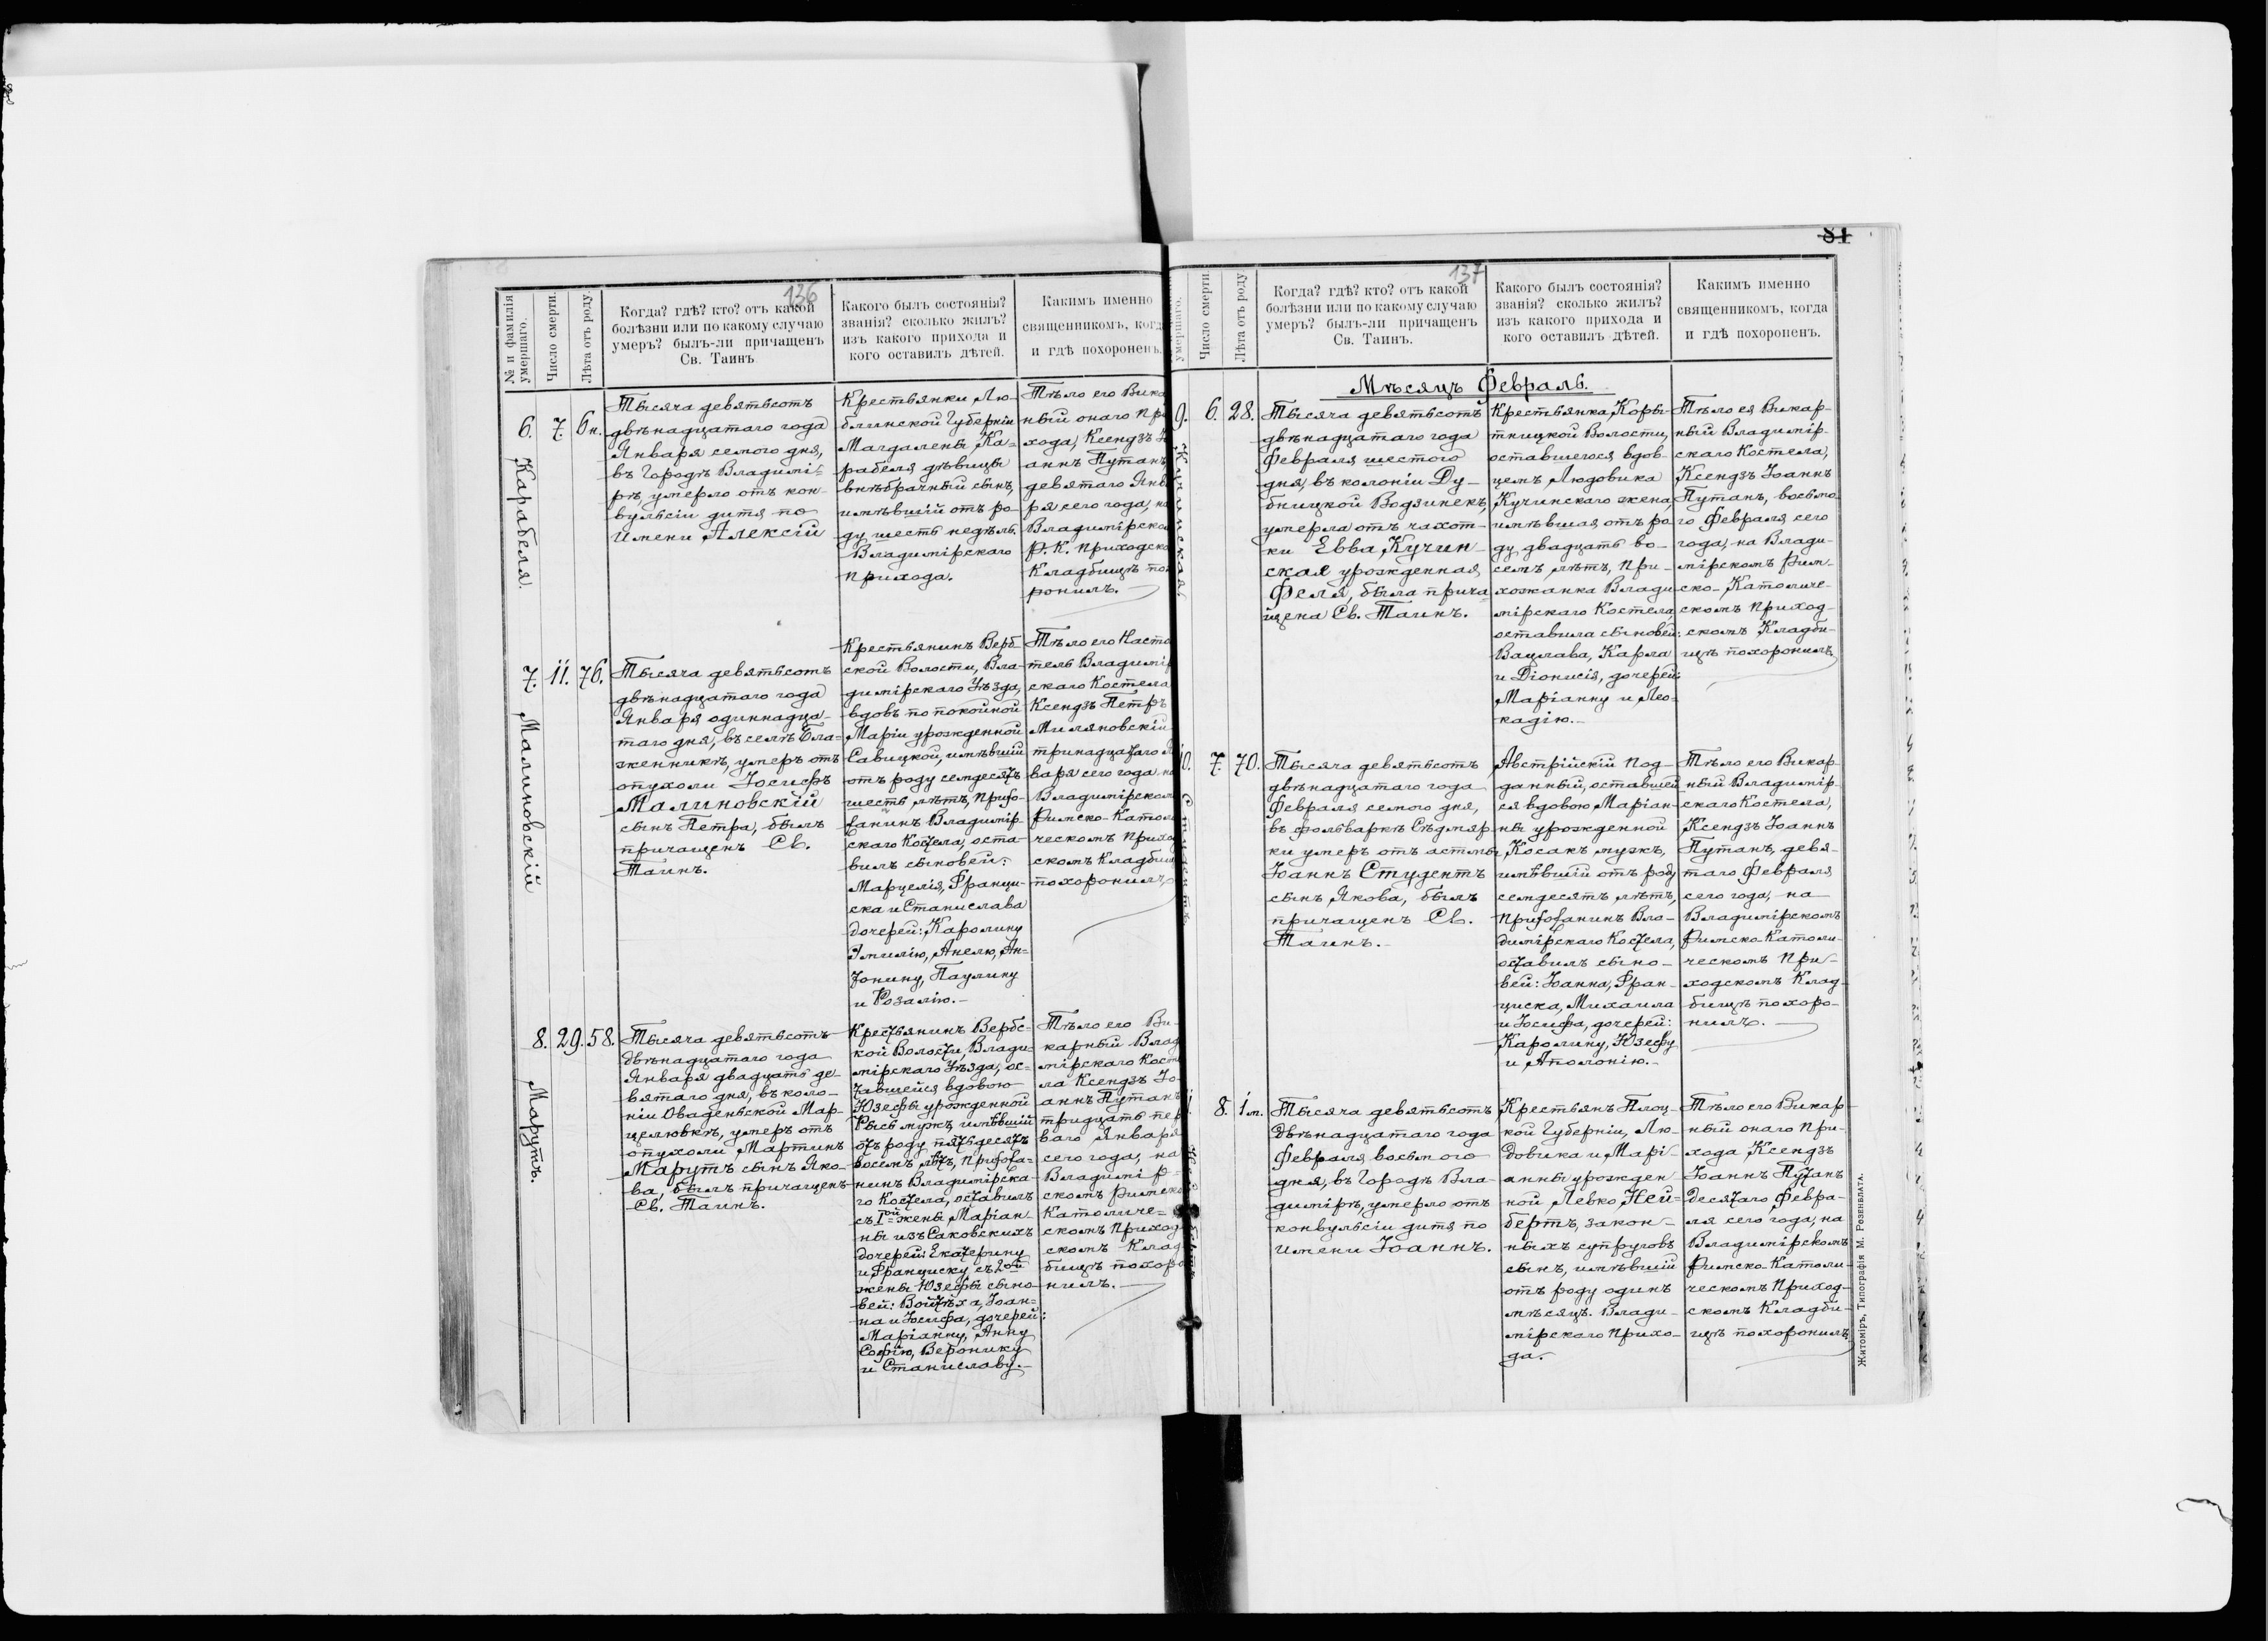 136
№ и фамилія умершаго.
Число смерти.
Лѣта отъ роду.
Когда? гдѣ? кто? отъ какой
болѣзни или по какому случаю
умеръ? былъ-ли причащенъ
Св. Таинъ
Какого былъ состоянія?
званія? сколько жилъ?
изъ какого прихода и
кого оставилъ дѣтей.
Какимъ именно
священникомъ, когд
и гдѣ похороненъ.
6.
Карабеля.
7.
6 н.
Тысяча девятьсотъ
двѣнадцатаго года
Января семого дня,
въ Городѣ Владимі-
рѣ, умерло отъ кон-
вульсіи дитя по
Имени Алексій
Крестьянки Лю-
блинской Губерніи
Магдалены Ка-
рабеля дѣвицы
внѣбрачный сынъ,
имѣвшій отъ ро-
ду шесть недѣль.
Владимірскаго
прихода.
Тѣло его Вика
ный онаго При
хода, Ксендзъ І
аннъ Путанъ
девятаго Янва
ря сего года, на
Владимірско
Р. К. приходско
Кладбищѣ по
ронилъ.
7.
Малиновскій
11.
76.
Тысяча девятьсотъ
двѣнадцатаго года
Января одиннадца-
таго дня, въ селѣ Бла-
женникѣ, умеръ отъ
опухоли Іосифъ
Малиновскій
сынъ Петра, былъ
причащенъ Св.
Таинъ.
Крестьянинъ Верб-
ской Волости, Вла-
димірскаго Уѣзда,
вдовъ по покойной
Маріи урожденной
Савицкой, имѣвшій
отъ роду семдесятъ
шесть лѣтъ, Прихо-
жанинъ Владимір-
скаго Костела, оста-
вилъ сыновей:
Марцелія, Франци-
ска и Станислава
дочерей: Каролину
Эмилію, Анелю, Ан-
тонину, Паулину
и Розалію.-
Тѣло его Насто
тель Владимір
скаго Костела
Ксендзъ Петръ
Миляновскій
тринадцатаго Я
варя сего года на
Владимірском
Римско-Катол
ческомъ Прихо
скомъ Кладби
похоронилъ
8.
Марутъ.
29.
58.
Тысяча девятьсотъ
двѣнадцатаго года
Января двадцать де-
вятаго дня, въ коло-
ніи Оваденьской Мар-
целювкѣ, умеръ отъ
опухоли Мартинъ
Марутъ сынъ Яко-
ва, былъ причащенъ
Св. Таинъ.
Крестьянинъ Вербс-
кой Волости, Влади-
мірскаго Уѣзда, ос-
тавшейся вдовою
Юзефы урожденной
Рысь мужъ имѣвшій
отъ роду пятьдесятъ
восемъ лѣтъ, Прихожа-
нинъ Владимірска-
го Костела, оставилъ
съ 1ой жены Маріан-
ны изъ Саковскихъ
дочерей: Екатерину
и Франциску съ 2ой
жены Юзефы сыно-
вей: Войтѣха, Іоан-
на и Іосифа, дочерей:
Маріанну, Анну
Софію, Веронику
и Станиславу.-
Тѣло его Ви-
карный Влад
мірскаго Кост
ла Ксендзъ Іо-
аннъ Путанъ
тридцать пер
ваго Января
сего года, на
Владимір-
скомъ Римско
Католиче-
скомъ Приход
скомъ Клад
бищѣ похоро
нилъ.
81
137
умершаго.
Число смерти.
Лѣта отъ роду
Когда? гдѣ? кто? отъ какой
болѣзни или по какому случаю
умеръ? былъ-ли причащенъ
Св. Таинъ.
Какого былъ состоянія?
званія? сколько жилъ?
изъ какого прихода и
кого оставилъ дѣтей.
Какимъ именно
священникомъ, когда
и гдѣ похороненъ.
Мѣсяцъ Февраль.
9.
Кучинская
6.
28.
Тысяча девятьсотъ
двѣнадцатаго года
Февраля шестого
дня, въ колоніи Ду-
бницкой Водзинекъ,
умерла отъ чахот-
ки Евва Кучин-
ская урожденная
Феля, была прича-
щена Св. Таинъ.
Крестьянка Коры-
тницкой Волости,
оставшегося вдов-
цемъ Людовика
Кучинскаго жена,
имѣвшая отъ ро-
ду двадцать во-
семъ лѣтъ, При-
хожанка Влади-
мірскаго Костела,
оставила сыновей:
Вацлава, Карла
и Діонисія, дочерей:
Маріанну и Лео-
кадію.-
Тѣло ея Викар-
ный Владимір-
скаго Костела,
Ксендзъ Іоаннъ
Путанъ, восьмо-
го Февраля сего
года, на Влади-
мірскомъ Рим-
ско-Католиче-
скомъ Приход-
скомъ Кладби-
щѣ похоронилъ
10.
Студентъ
7.
70.
Тысяча девятьсотъ
двѣнадцатаго года
Февраля семого дня,
въ фольваркѣ Сѣдмяр-
ки умеръ отъ астмы
Іоаннъ Студентъ
сынъ Якова, былъ
причащенъ Св.
Таинъ.-
Австрійскій Под-
данный, оставшей
ся вдовою Маріан-
ны урожденной
Косакъ мужъ,
имѣвшій отъ роду
семдесятъ лѣтъ,
Прихожанинъ Вла-
димірскаго Костела,
оставилъ сыно-
вей: Іоанна, Фран-
циска, Михаила
и Іосифа, дочерей:
Каролину, Юзефу
и Аполонію.-
Тѣло его Викар-
ный Владимір-
скаго Костела,
Ксендзъ Іоаннъ
Путанъ, девя-
таго Февраля
сего года, на
Владимірскомъ
Римско-Католи-
ческомъ При-
ходскомъ Клад-
бищѣ похоро-
нилъ.
8.
1 м.
Тысяча девятьсотъ
двѣнадцатаго года
Февраля восьмого
дня, въ Городѣ Вла-
димірѣ, умерло отъ
конвульсіи дитя по
Имени Іоаннъ.
Крестьянъ Плоц-
кой Губерніи, Лю-
довика и Марі-
анны урожден-
ной Левко Ней-
бертъ, закон-
ныхъ супруговъ
сынъ, имѣвшій
отъ роду одинъ
мѣсяцъ. Влади-
мірскаго Прихо-
да.
Тѣло его Викар-
ный онаго При-
хода Ксендзъ
Іоаннъ Путанъ
десятаго Февра-
ля сего года, на
Владимірскомъ
Римско-Католи-
ческомъ Приход-
скомъ Кладби-
щѣ похоронилъ
Житоміръ, Типографія М. Резенблата.